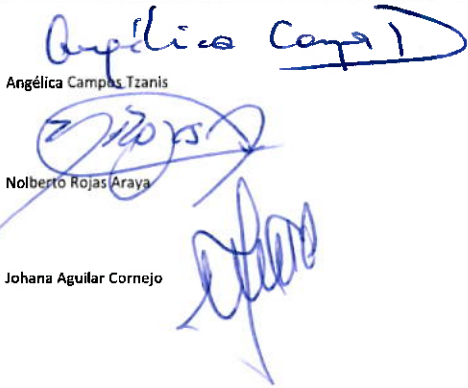 Angélica Camps D
Angélica Campos Tzanis
Rojas
Nolberto Rojas Araya
Johana Aguilar Cornejo